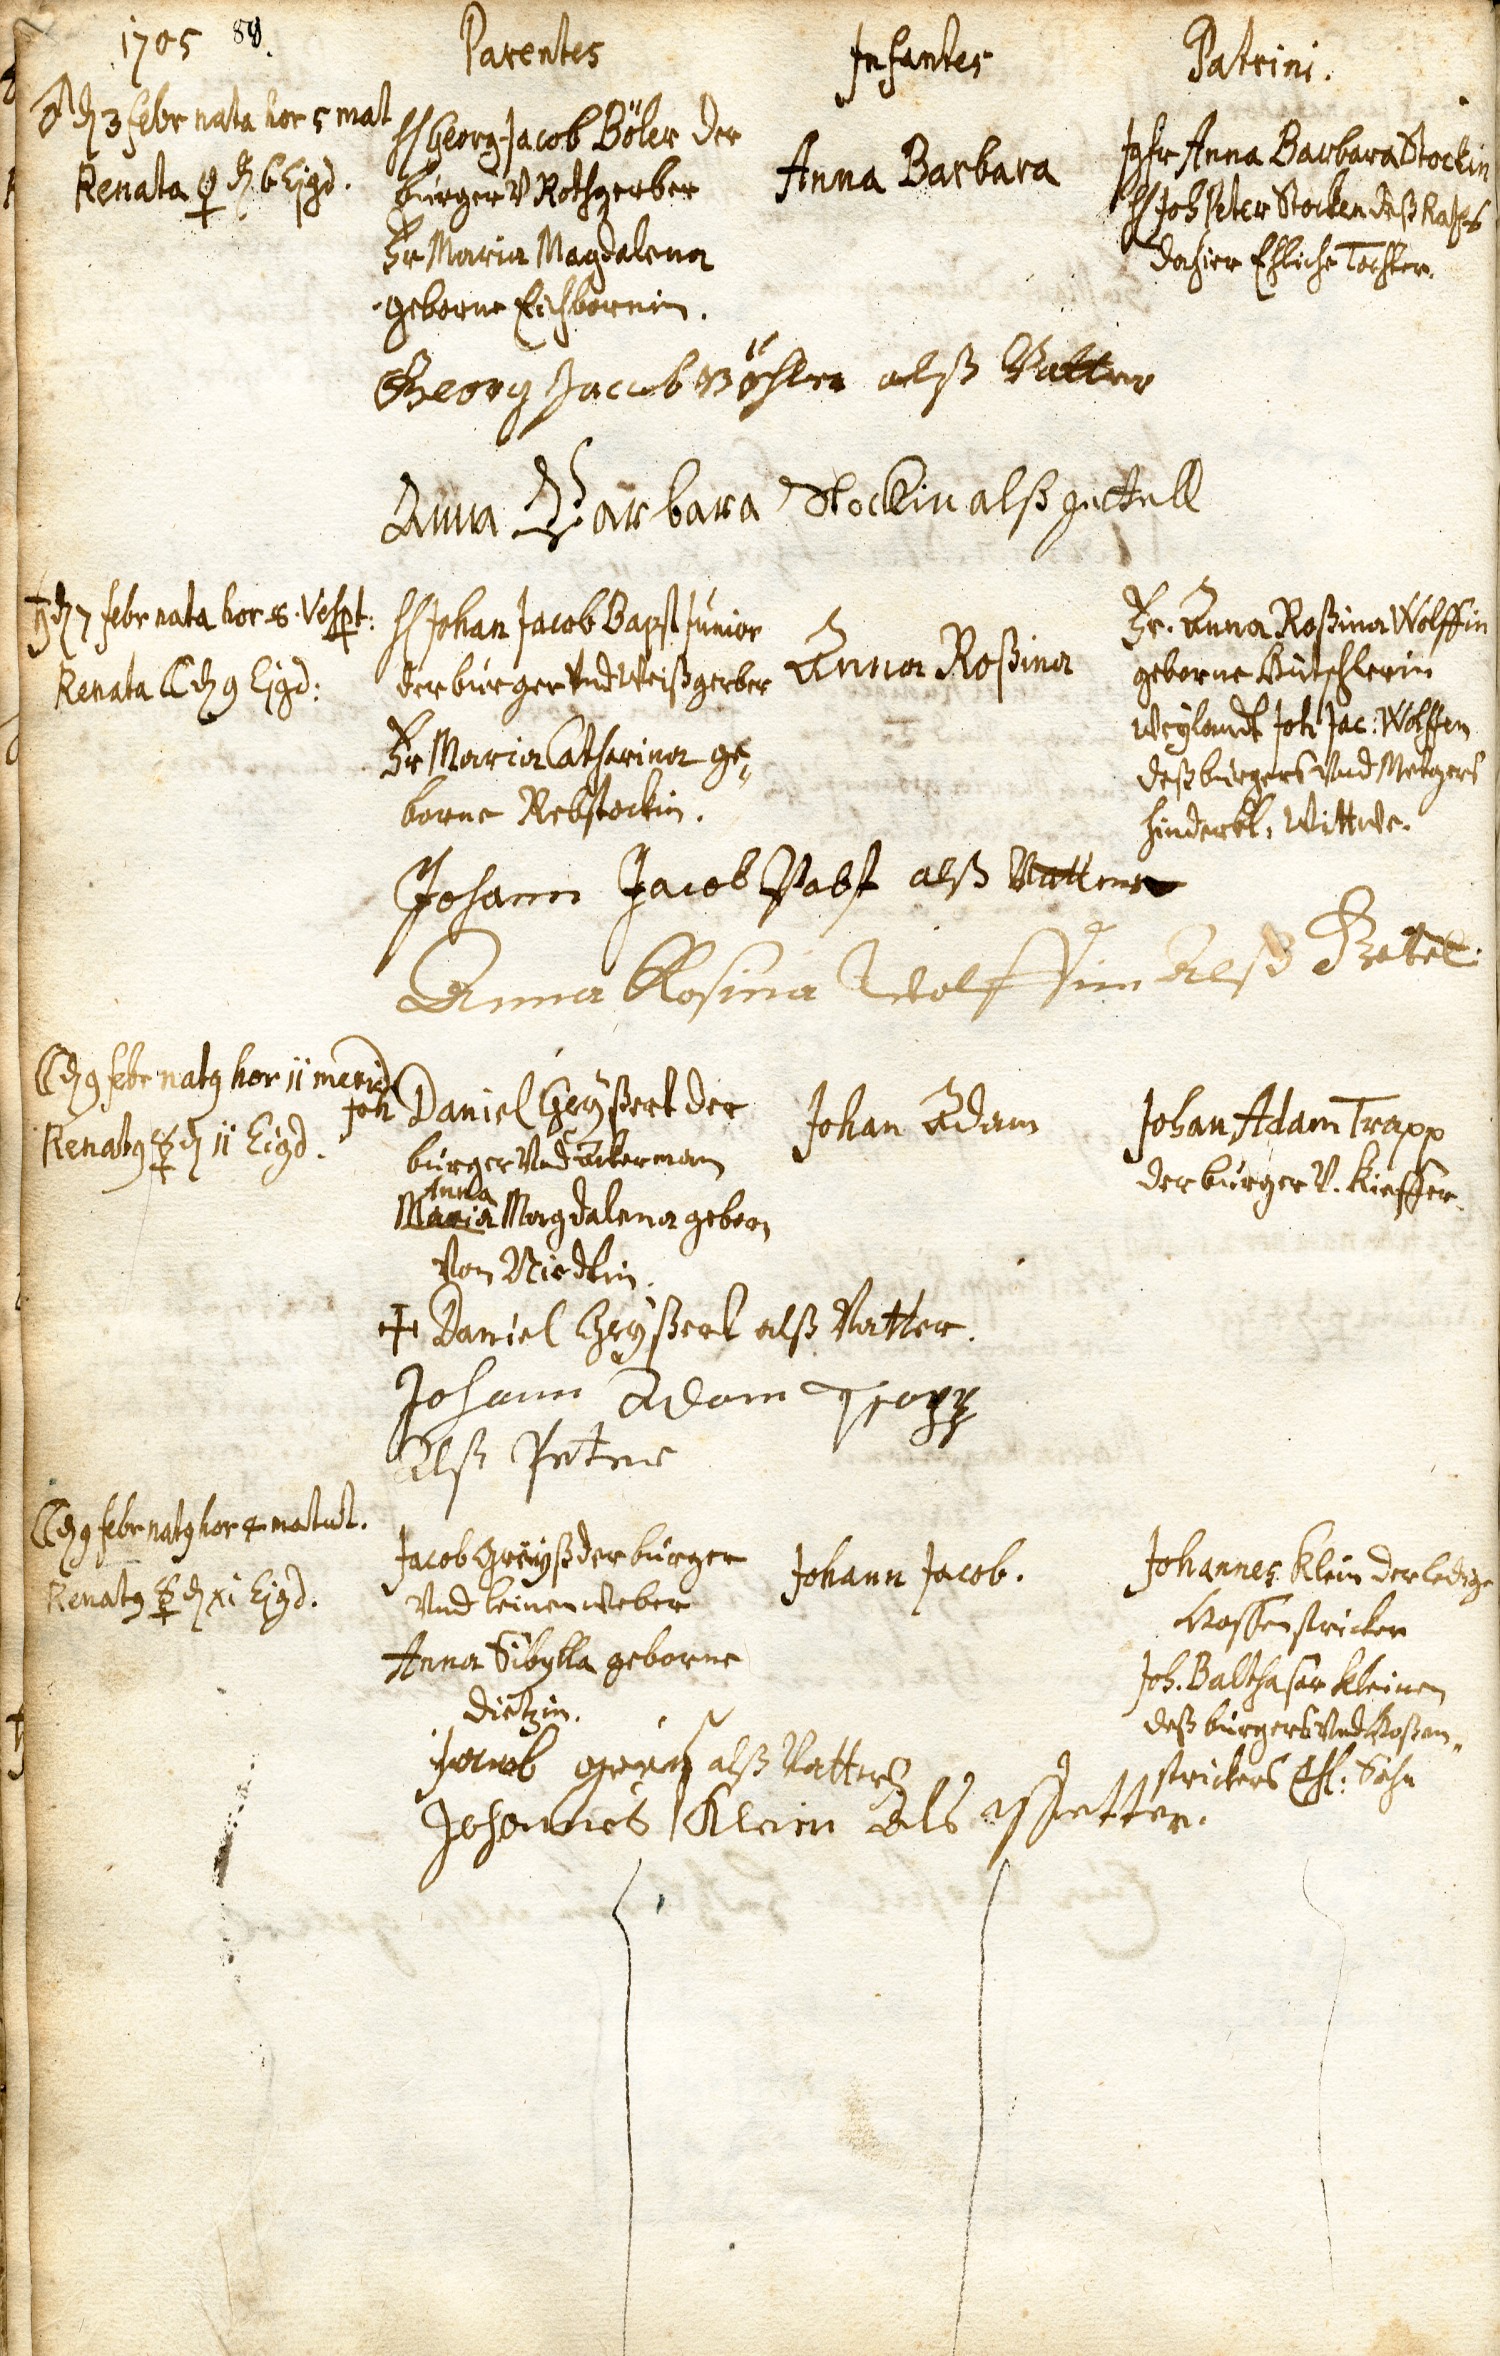 1705 80.
Parentes
Infantes
Patrini.
♂ d 3 febr nata hor 5 mat
Renata ♀ d 6 Ejqd.
H Georg-Jacob Böler der
burger V Rothgerber
Fr Maria Magdalena
geborne Eichbornin.
Anna Barbara
Jgfr Anna Barbara Stockin
H Joh Peter Stocken deß Raths
dahier Ehliche Tochter.
Georg Jacob Böhler alß Vatter
Anna Barbara Stockin alß gettell
♄ d 7 febr nata hor 8. Vespt:
Renata ☾ d 9 Ejqd:
H Johan Jacob Bapst Junior
der burger Vnd Weißgerber
Fr Maria Catharina ge„
borne Rebstockin.
Anna Roßina
Fr. Anna Roßina Wolffin
geborne Bütschlerin
Weylandt Joh Jac: Wolffen
deß burgers Vnd Metzgers
hinderbl: Wittwe.
Johann Jacob Pabst alß Vatter
Anna Rosina Wolffin Alß Getel
☾ d 9 febr natq hor 11 merid
Renatq ☿ d 11 Eiqd.
Joh Daniel Greyßert der
burger Vnd Ackerman
Anna
Maria Magdalena gebor
von Niedtin.
Johan Adam
Johan Adam Trapp
der burger V. Kieffer.
+ Daniel Greyßert alß Vatter.
Johann Adam Trapp
Alß Peter
☾ d 9 febr natq hor 4 matut.
Renatq ☿ d xi Ejqd.
Jacob Greyß der burger
Vnd leinenweber
Anna Sibylla geborne
Dietzin.
Johann Jacob.
Johannes Klein der ledige
Hossenstricker
Joh. Balthasar Kleinen
deß burgers Vnd Hoßen„
strickers Ehl: Sohn
Jacob greyß alß Vatter
Johannes Klein Als Pfetter.